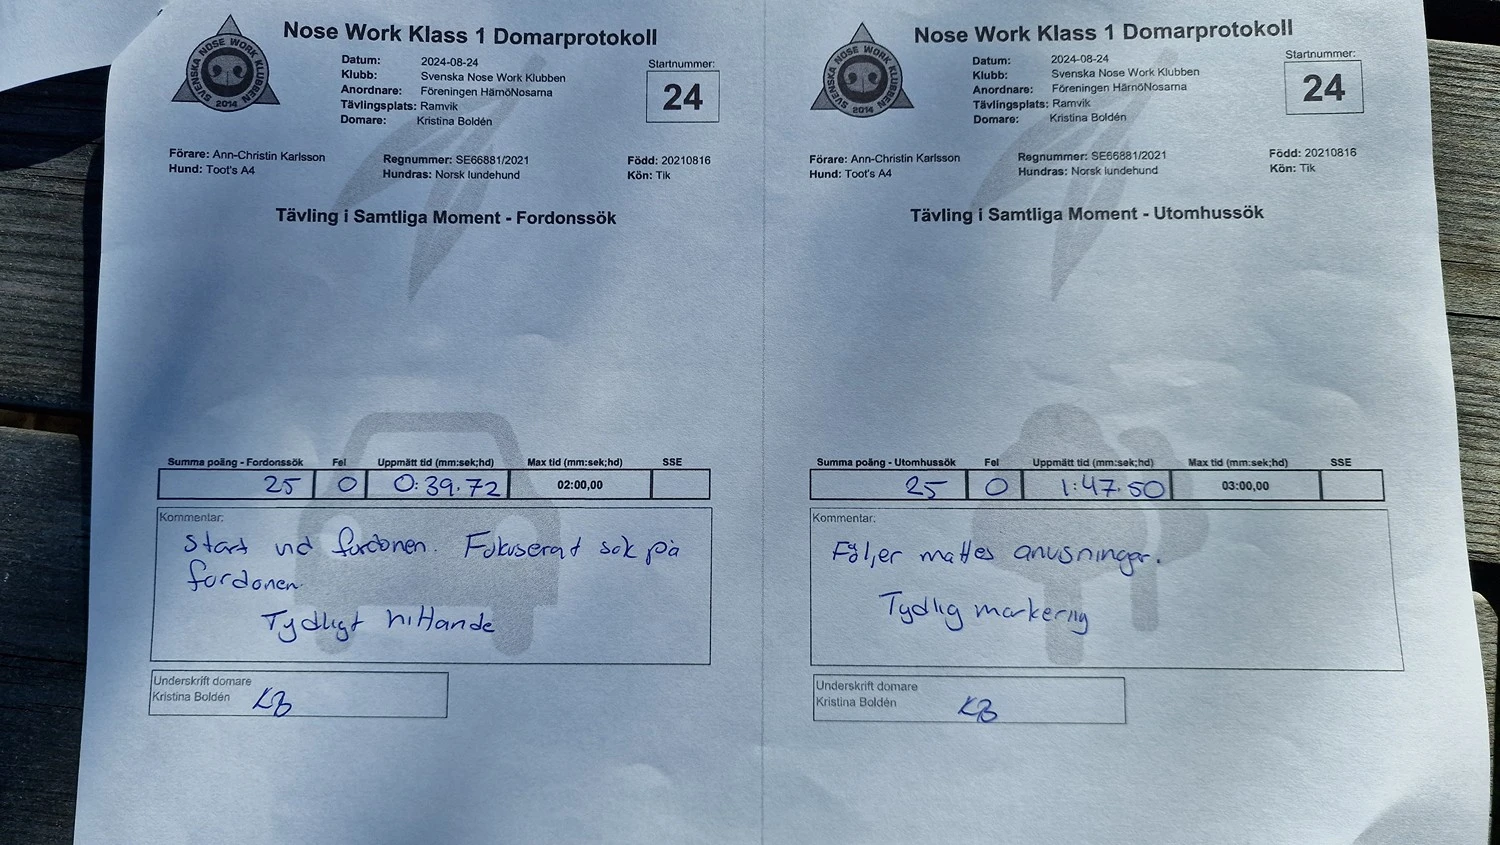 SVENSKA NOSE WORK KLUBBEN
2014
Nose Work Klass 1 Domarprotokoll
Datum: 2024-08-24
Klubb: Svenska Nose Work Klubben
Anordnare: Föreningen HärnöNosarna
Tävlingsplats: Ramvik
Domare: Kristina Boldén
Startnummer:
24
Förare: Ann-Christin Karlsson
Hund: Toot's A4
Regnummer: SE66881/2021
Hundras: Norsk lundehund
Född: 20210816
Kön: Tik
Tävling i Samtliga Moment - Fordonssök
Summa poäng - Fordonssök Fel Uppmätt tid (mm:sek;hd) Max tid (mm:sek;hd) SSE
25 0 0:39.72 02:00,00
Kommentar:
Start vid fordonen. Fokuserat sök på
fordonen.
Tydligt hittande
Underskrift domare
Kristina Boldén KB
SVENSKA NOSE WORK KLUBBEN
2014
Nose Work Klass 1 Domarprotokoll
Datum: 2024-08-24
Klubb: Svenska Nose Work Klubben
Anordnare: Föreningen HärnöNosarna
Tävlingsplats: Ramvik
Domare: Kristina Boldén
Startnummer:
24
Förare: Ann-Christin Karlsson
Hund: Toot's A4
Regnummer: SE66881/2021
Hundras: Norsk lundehund
Född: 20210816
Kön: Tik
Tävling i Samtliga Moment - Utomhussök
Summa poäng - Utomhussök Fel Uppmätt tid (mm:sek;hd) Max tid (mm:sek;hd) SSE
25 0 1:47.50 03:00,00
Kommentar:
Följer mattes anvisningar.
Tydlig markering
Underskrift domare
Kristina Boldén KB